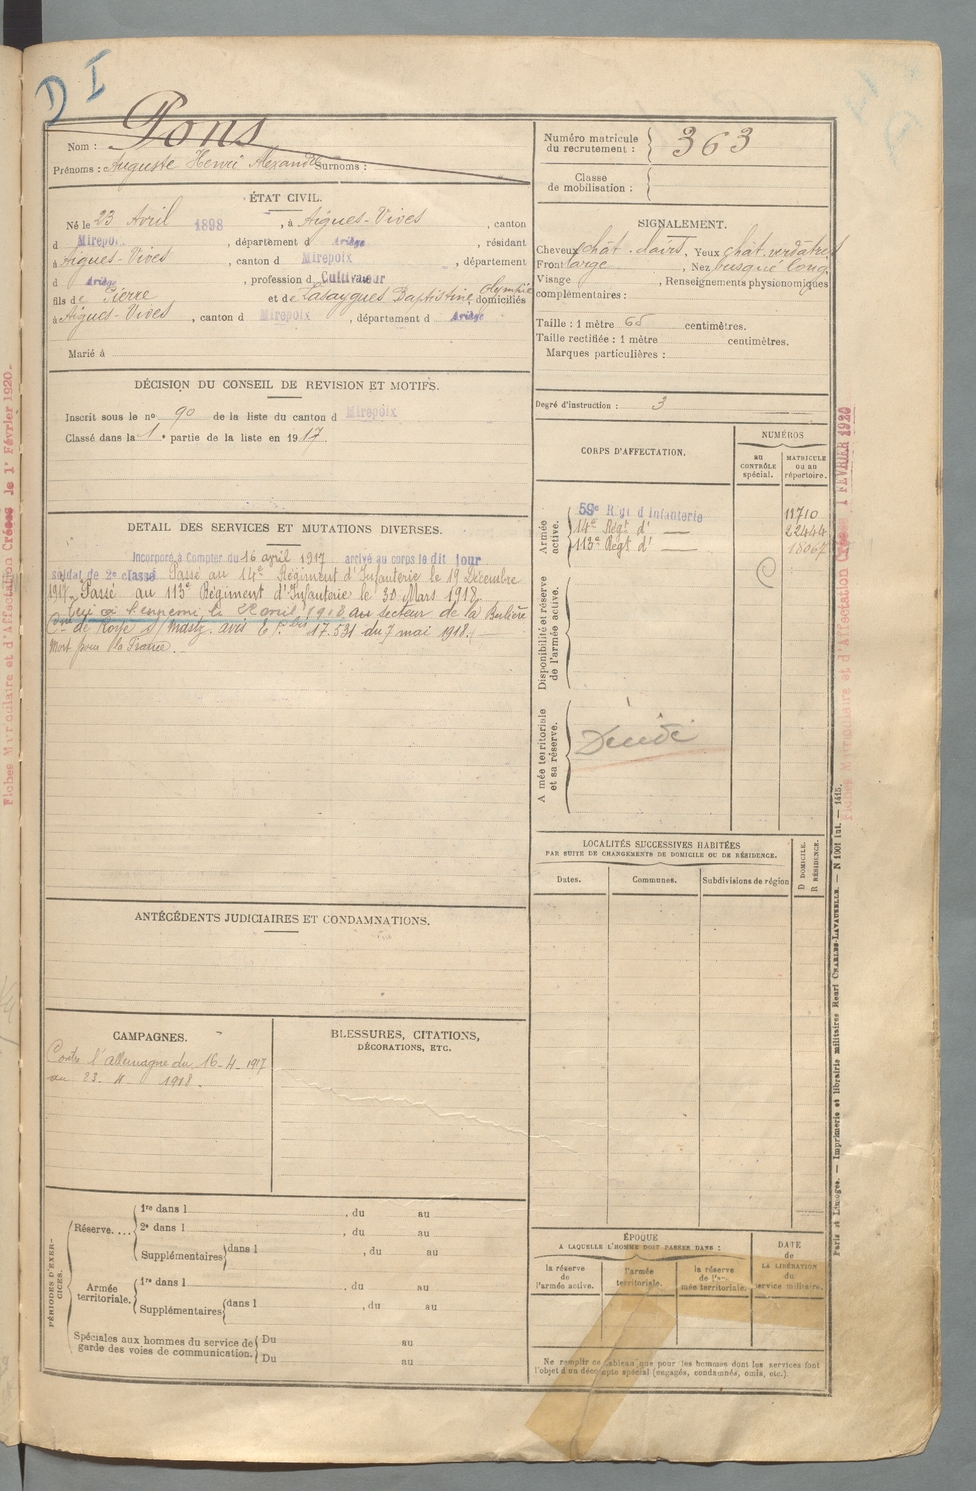 D I
Pons
Nom :
Prénoms : Auguste Henri Alexandre Surnoms :
ÉTAT CIVIL.
Né le 23 Avril 1898, à Aigues-Vives, canton
d Mirepoix, département d Ariège, résidant
à Aigues-Vives, canton d Mirepoix, département
d Ariège, profession d Cultivateur
fils de Pierre et de Lasaygues Baptistine Olympie, domiciliés
à Aigues-Vives, canton d Mirepoix, département d Ariège
Marié à
DÉCISION DU CONSEIL DE REVISION ET MOTIFS.
Inscrit sous le nº 90 de la liste du canton d Mirepoix
Classé dans la 1e partie de la liste en 1917.
DÉTAIL DES SERVICES ET MUTATIONS DIVERSES.
Incorporé à Compter du 16 april 1917 arrivé au corps le dit jour
soldat de 2e classe Passé au 14e Régiment d'Infanterie le 19 Décembre
1917. Passé au 113e Régiment d'Infanterie le 30 Mars 1918.
Tué à l'ennemi le avril 1918 au secteur de la
de avis 17.531 du 7 mai 1918.
Mort pour la France.
ANTÉCÉDENTS JUDICIAIRES ET CONDAMNATIONS.
CAMPAGNES.
Contre l'allemagne du 16-4-1917
au 23-4 1918.
BLESSURES, CITATIONS,
DÉCORATIONS, ETC.
PÉRIODES D'EXERCICES.
Réserve.... 1re dans l , du au
2e dans l , du au
Supplémentaires dans l , du au
Armée territoriale. 1re dans l , du au
Supplémentaires dans l , du au
Spéciales aux hommes du service de garde des voies de communication. Du au
Du au
Numéro matricule du recrutement : 363
Classe de mobilisation :
SIGNALEMENT.
Cheveux chât. clairs, Yeux chât. verdâtres
Front large, Nez busqué long
Visage , Renseignements physionomiques
complémentaires :
Taille : 1 mètre 65 centimètres.
Taille rectifiée : 1 mètre centimètres.
Marques particulières :
Degré d'instruction : 3
CORPS D'AFFECTATION.
NUMÉROS
au CONTRÔLE spécial.
MATRICULE ou au répertoire.
Armée active.
59e Rgt d'Infanterie 11710
14e Régt d° 22444
113e Régt d° 18067
Disponibilité et réserve de l'armée active.
Armée territoriale et sa réserve.
Décédé
LOCALITÉS SUCCESSIVES HABITÉES
PAR SUITE DE CHANGEMENTS DE DOMICILE OU DE RÉSIDENCE.
Dates. Communes. Subdivisions de région
D DOMICILE. R RÉSIDENCE.
ÉPOQUE
A LAQUELLE L'HOMME DOIT PASSER DANS :
la réserve de l'armée active.
l'armée territoriale.
la réserve de l'armée territoriale.
DATE de LA LIBÉRATION du service militaire.
Ne remplir ce tableau que pour les hommes dont les services font
l'objet d'un décompte spécial (engagés, condamnés, omis, etc.).
Paris et Limoges. — Imprimerie et librairie militaires Henri CHARLES-LAVAUZELLE. — N 1001 int. — 1415.
Fiches Matriculaire et d'Affectation Créées le 1er Février 1920.
Fiches Matriculaire et d'Affectation Créées 1 FÉVRIER 1920